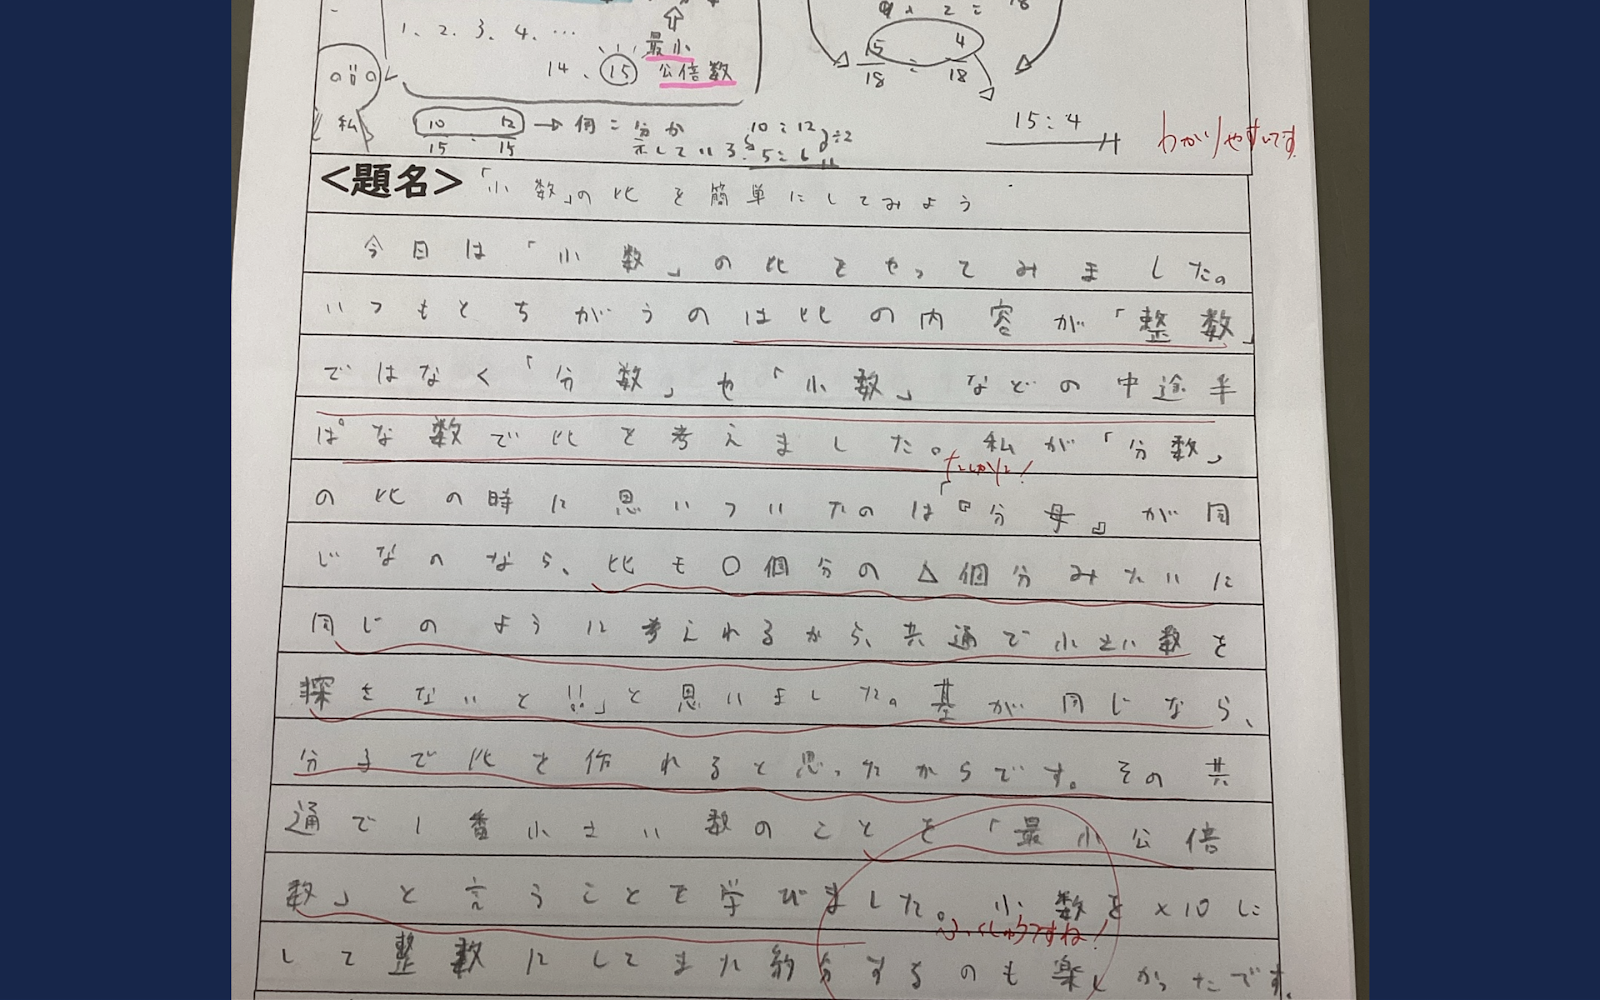 9 × 2 = 18
1、2、3、4、…
最小
14、15
公倍数
15/18 : 4/18
15:4
わかりやすいです。
私
10/15 : 12/15 → 何こ分か
示している。
10:12
÷2
5:6
<題名>「小数」の比を簡単にしてみよう
今日は「小数」の比をやってみました。
いつもとちがうのは比の内容が「整数」
ではなく「分数」や「小数」などの中途半
ぱな数で比を考えました。私が「分数」
たしかに!
の比の時に思いついたのは「『分母』が同
じなのなら、比も〇個分の△個分みたいに
同じのように考えれるから、共通で小さい数を
探さないと!!」と思いました。基が同じなら、
分子で比を作れると思ったからです。その共
通で1番小さい数のことを「最小公倍
数」と言うことを学びました。小数を×10に
ふくしゅうですね!
して整数にしてまた約分するのも楽しかったです。